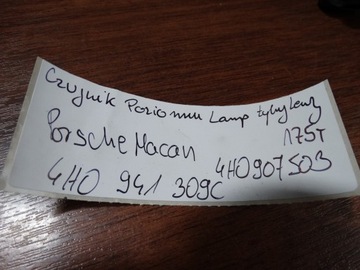 Czujnik Poziomu Lamp tylny lewy
Porsche Macan 175T
4H0 941 309C 4H0907503